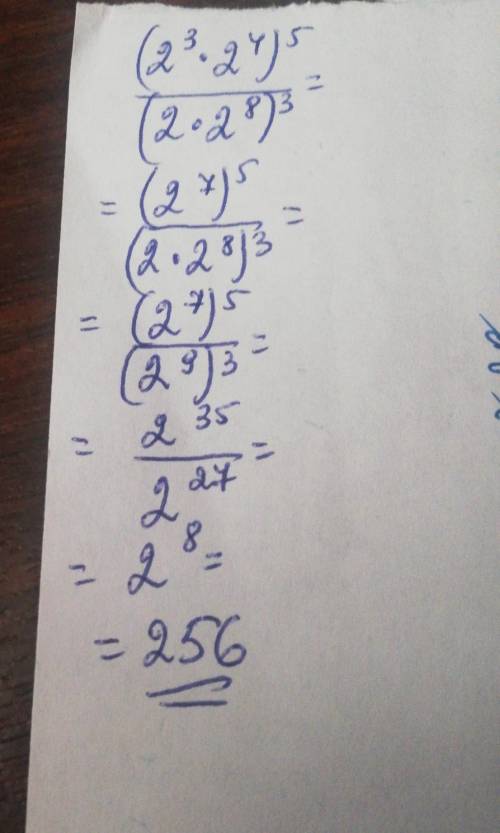 (2³·2⁴)⁵
(2·2⁸)³ =
= (2⁷)⁵
(2·2⁸)³ =
= (2⁷)⁵
(2⁹)³ =
= 2³⁵
2²⁷ =
= 2⁸ =
= 256